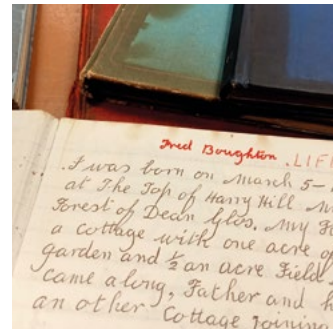 Fred Boughton . LIF
I was born on March 5-
at The Top of Harry Hill
Forest of Dean Glos. My
a Cottage with one acre of
garden and ½ an acre Field
came along, Father and
an other Cottage joining